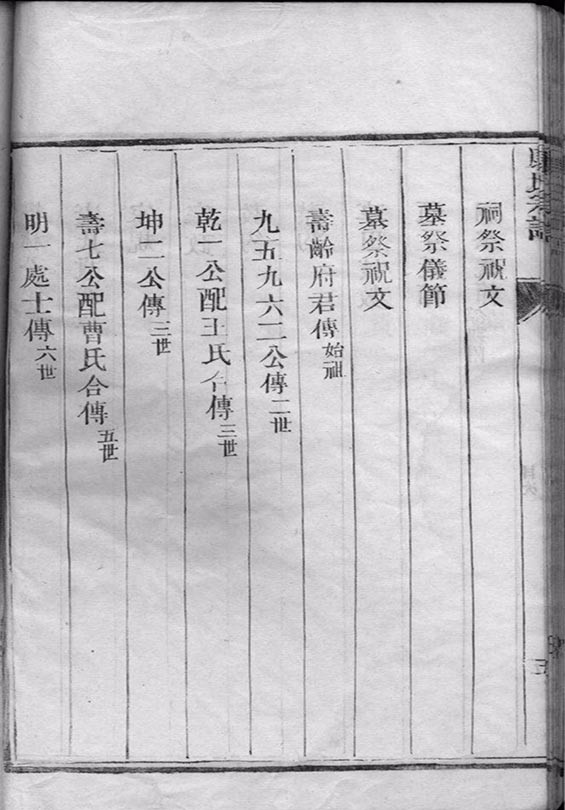 氏宗譜
祠祭祝文
墓祭儀節
墓祭祝文
壽齡府君傳始祖
九五九六二公傳二世
乾一公配王氏合傳三世
坤二公傳三世
壽七公配曹氏合傳五世
明一處士傳六世